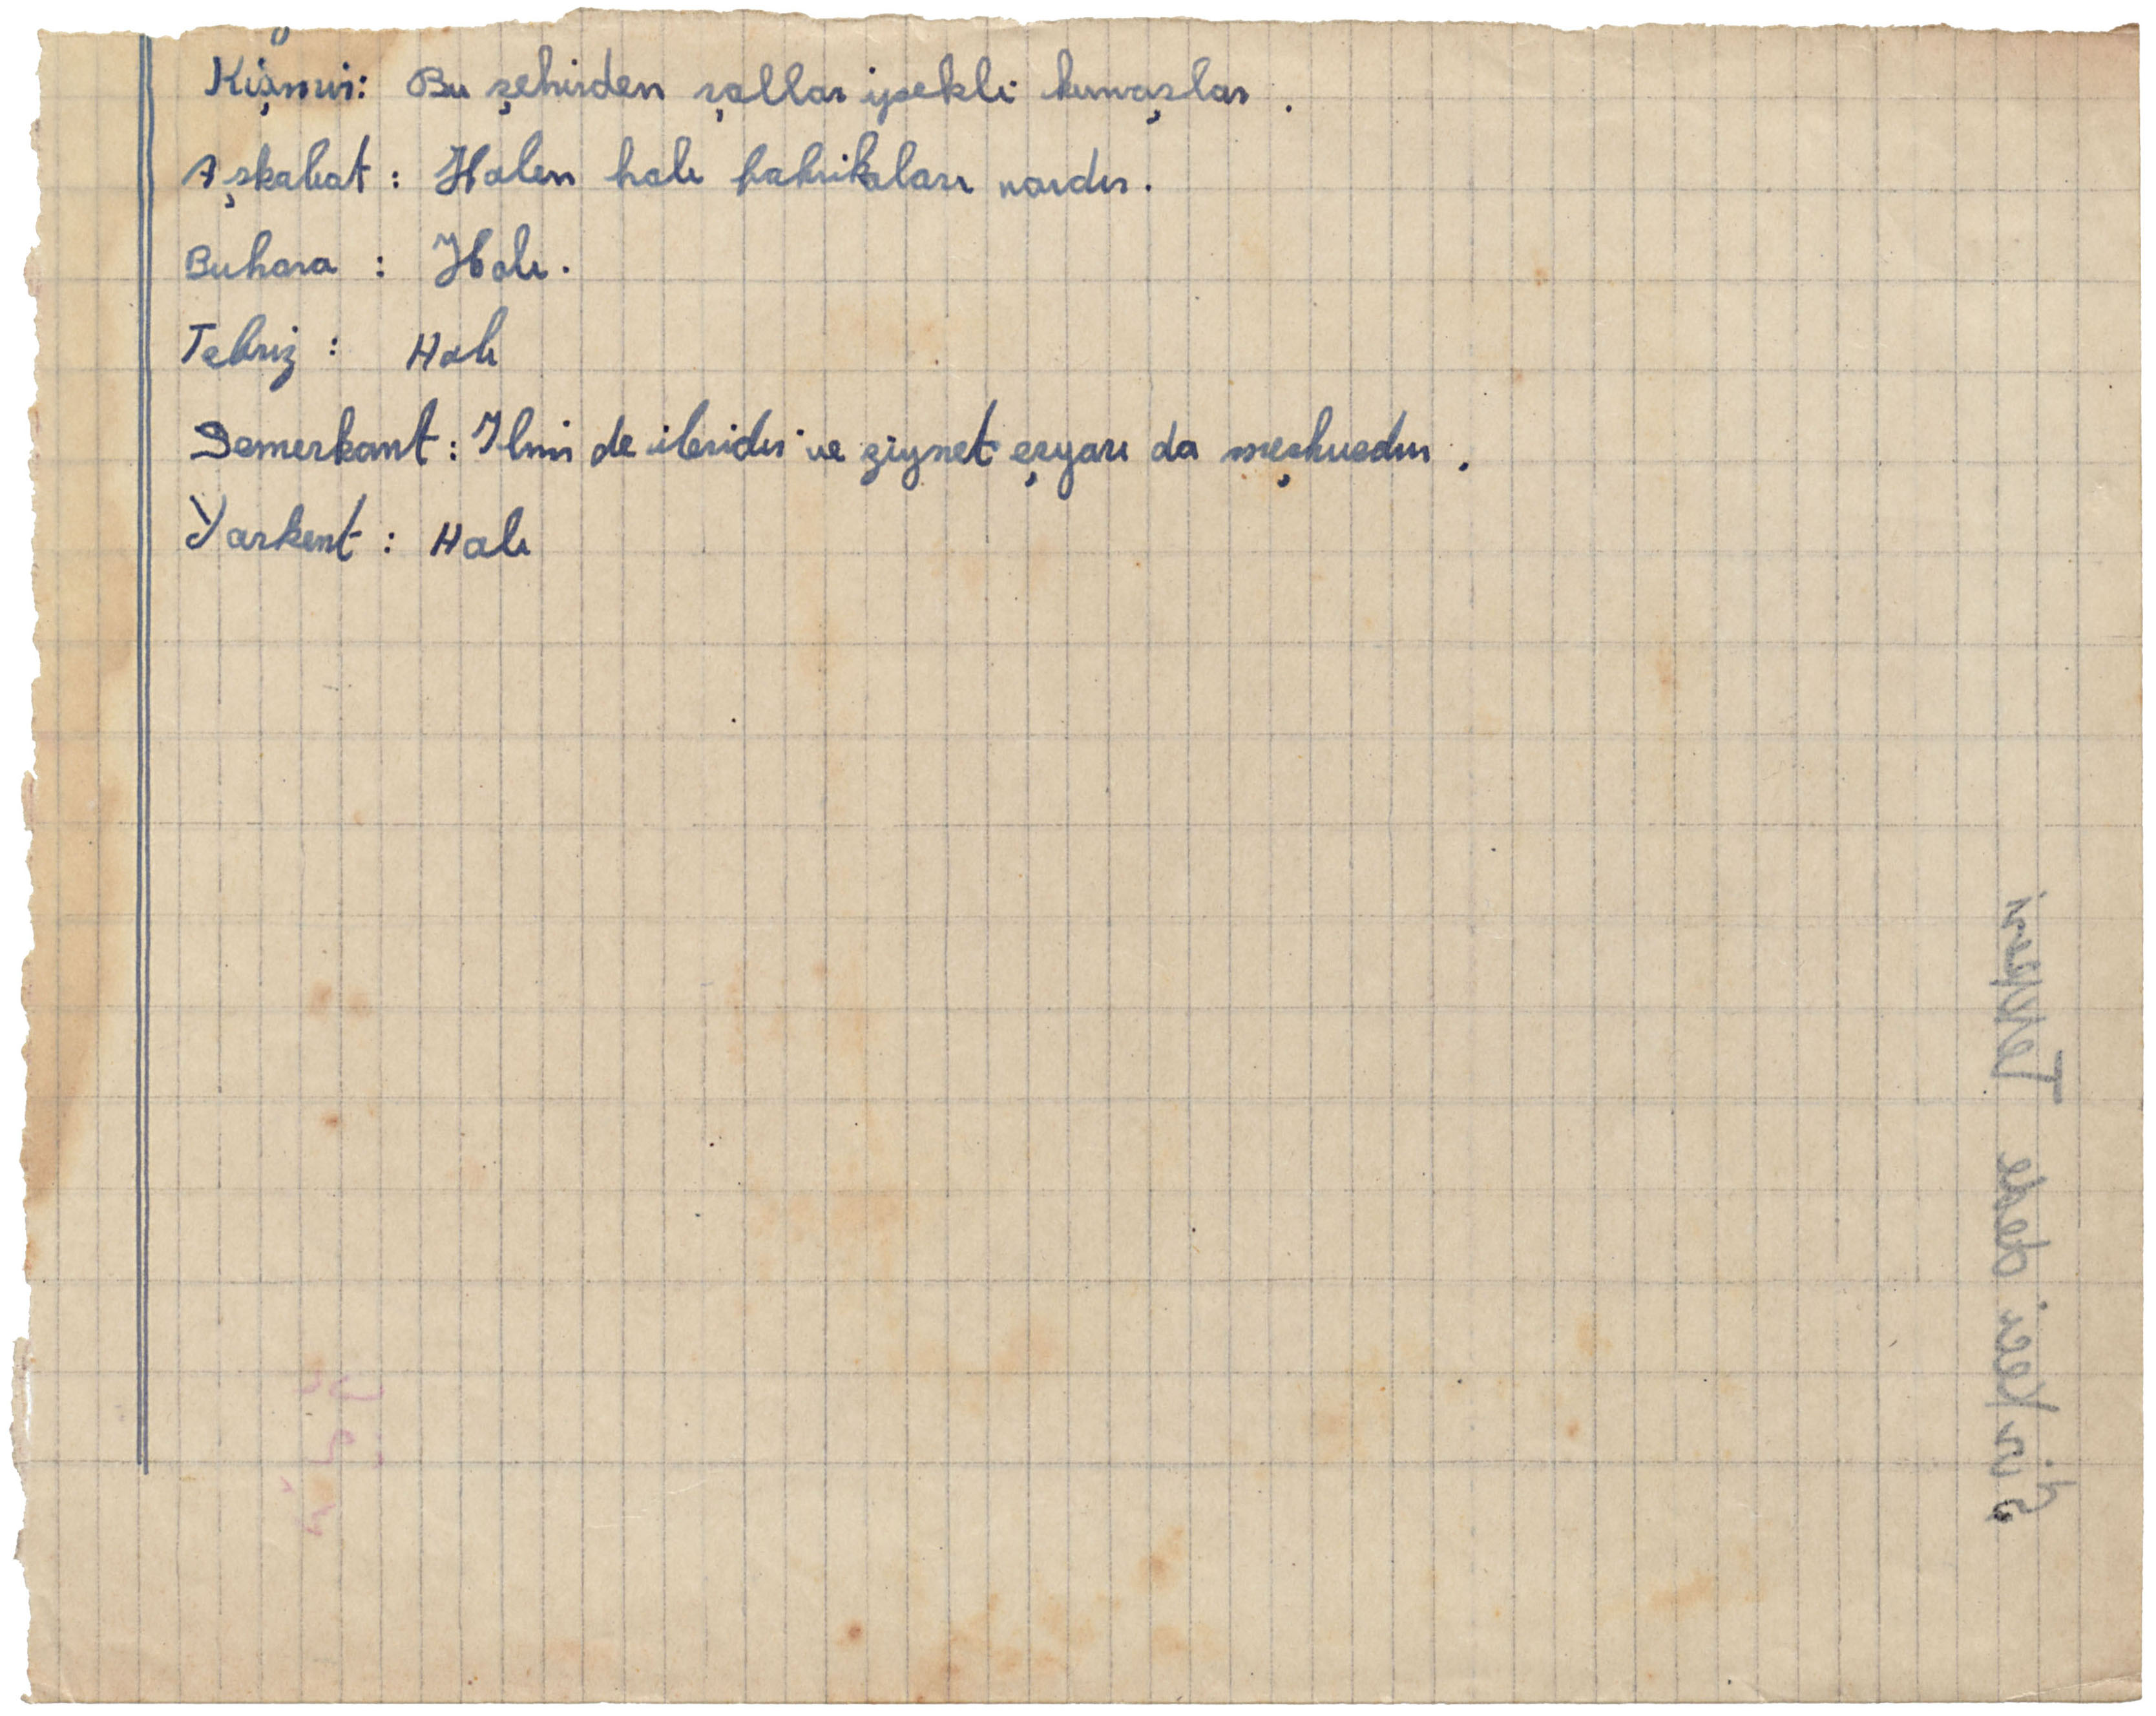 Kişmir: Bu şehirden şallar ipekli kumaşlar.
Aşkabat: Halen halı fabrikaları vardır.
Buhara: Halı.
Tebriz: Halı
Semerkant: Ilmi de ileridir ve ziynet eşyası da meşhurdur.
Yarkent: Halı